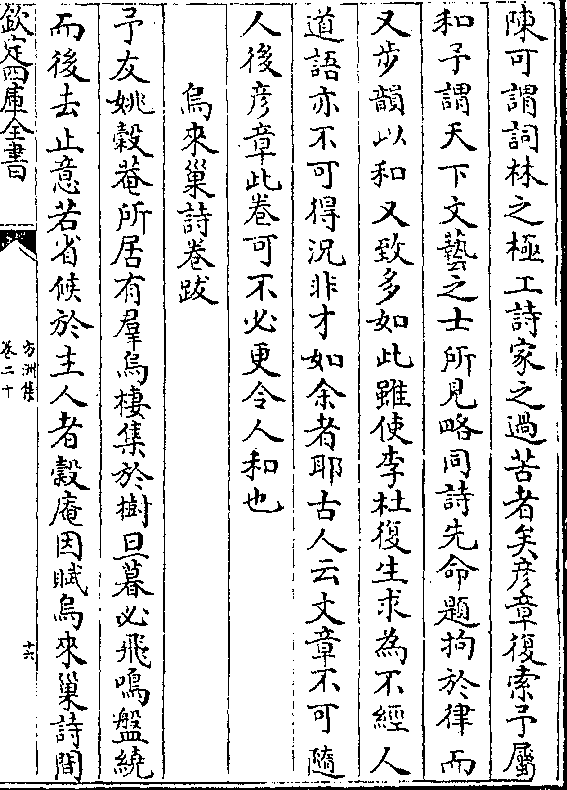 陳可謂詞林之極工詩家之過苦者矣彦章復索予屬
和予謂天下文藝之士所見略同詩先命題拘於律而
又步韻以和又致多如此雖使李杜復生求為不經人
道語亦不可得況非才如余者耶古人云文章不可隨
人後彦章此卷可不必更令人和也
烏來巢詩卷跋
予友姚榖菴所居有羣烏棲集於樹旦暮必飛鳴盤繞
而後去止意若省候於主人者榖庵因賦烏來巢詩間
欽定四庫全書
方洲集
卷二十
十六